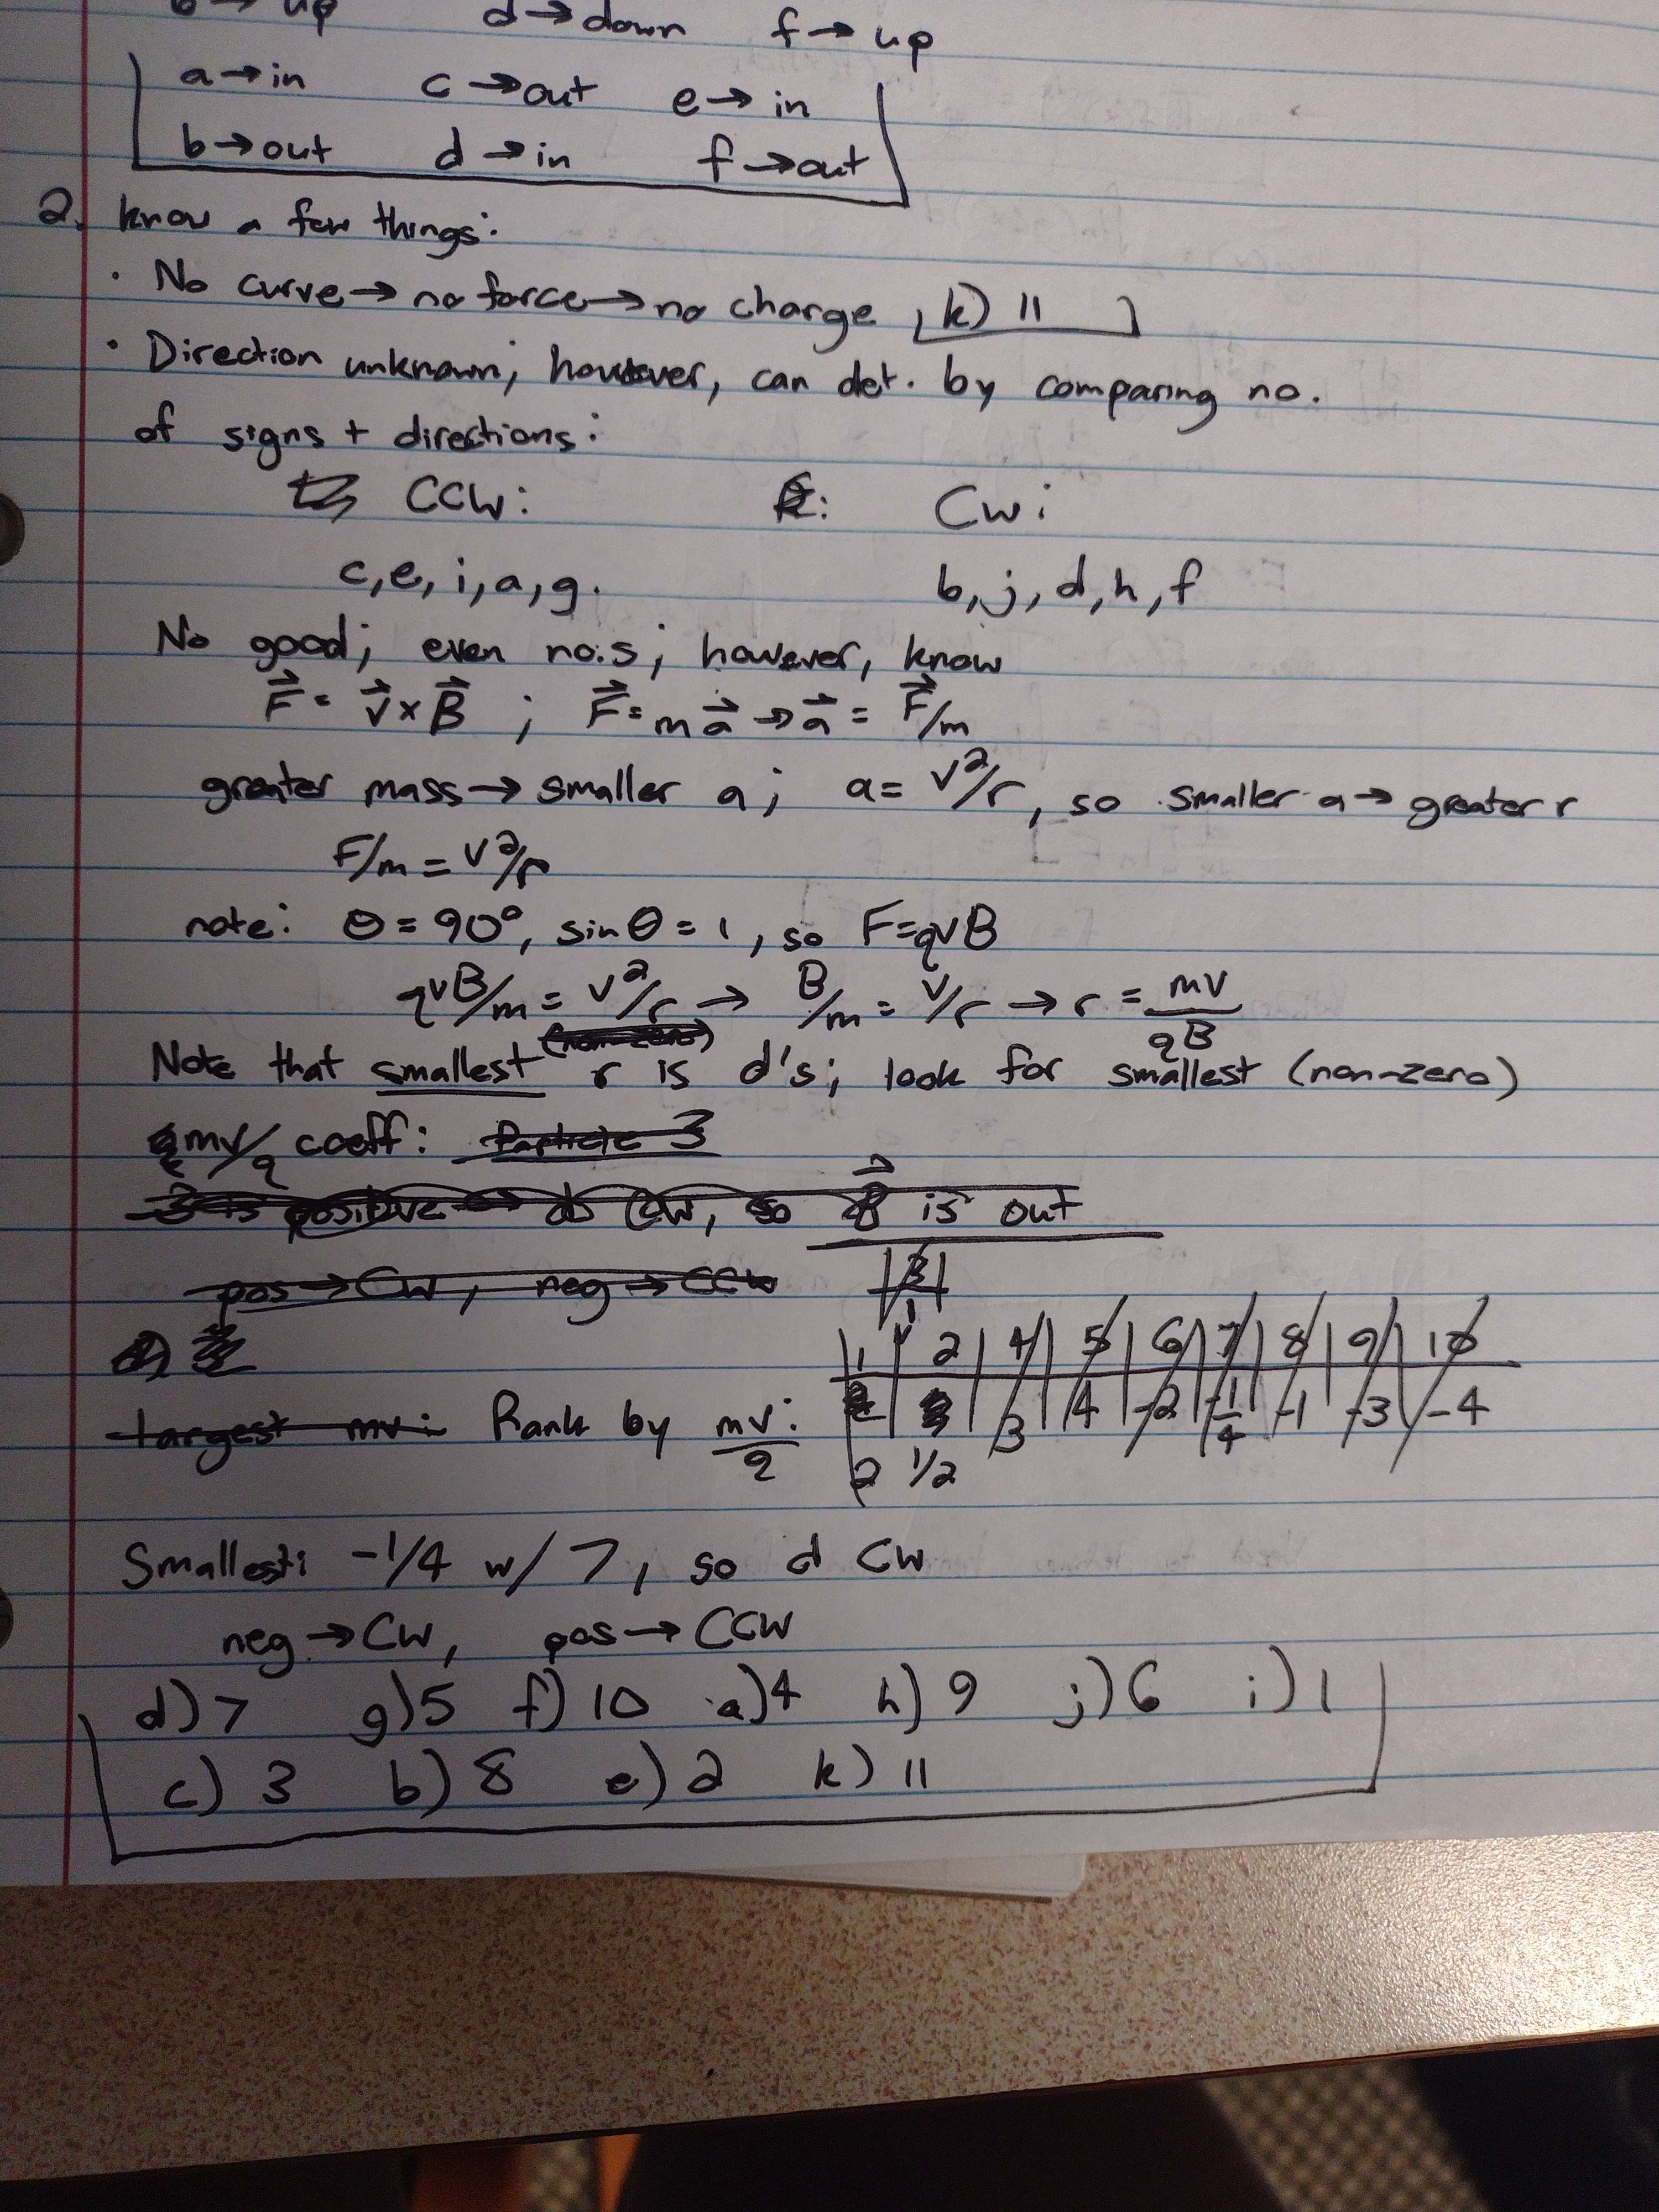 b→ up d→down f→ up
a→in c→out e→ in
b→out d→in f→out
2. know a few things:
· No curve→ no force→no charge, k) 11
· Direction unknown; however, can det. by comparing no.
of signs + directions:
CCW: CW:
c,e,i,a,g. b,j,d,h,f
No good; even no.s; however, know
F⃗= v⃗×B⃗ ; F⃗=ma⃗→a⃗=F⃗/m
greater mass→smaller a; a= v²/r, so smaller a→greater r
F/m=v²/r
note: θ=90°, sinθ=1, so F=qvB
qvB/m=v²/r→ B/m=v/r→r= mv/qB
Note that smallest (non-zero) r is d's; look for smallest (non-zero)
mv/q coeff: Particle 3
3 is positive → d CW, so B⃗ is out
pos→CW, neg→CCW |3|
1 2 4 5 6 7 8 9 10
largest mv: Rank by mv/q: 3 4 -2 -1/4 -1 -3 -4
2 1/2
Smallest: -1/4 w/ 7, so d CW
neg→CW, pos→CCW
d)7 g)5 f)10 a)4 h)9 j)6 i)1
c)3 b)8 e)2 k)11